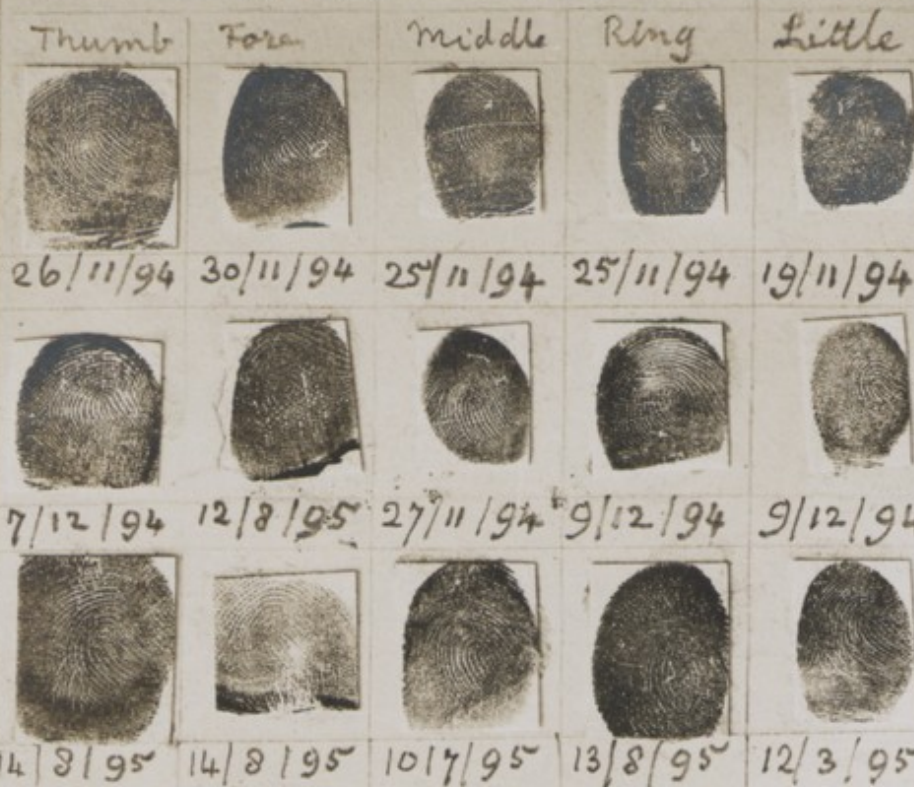 Thumb Fore Middle Ring Little
26/11/94 30/11/94 25/11/94 25/11/94 19/11/94
7/12/94 12/8/95 27/11/94 9/12/94 9/12/94
14/8/95 14/8/95 10/7/95 13/8/95 12/3/95